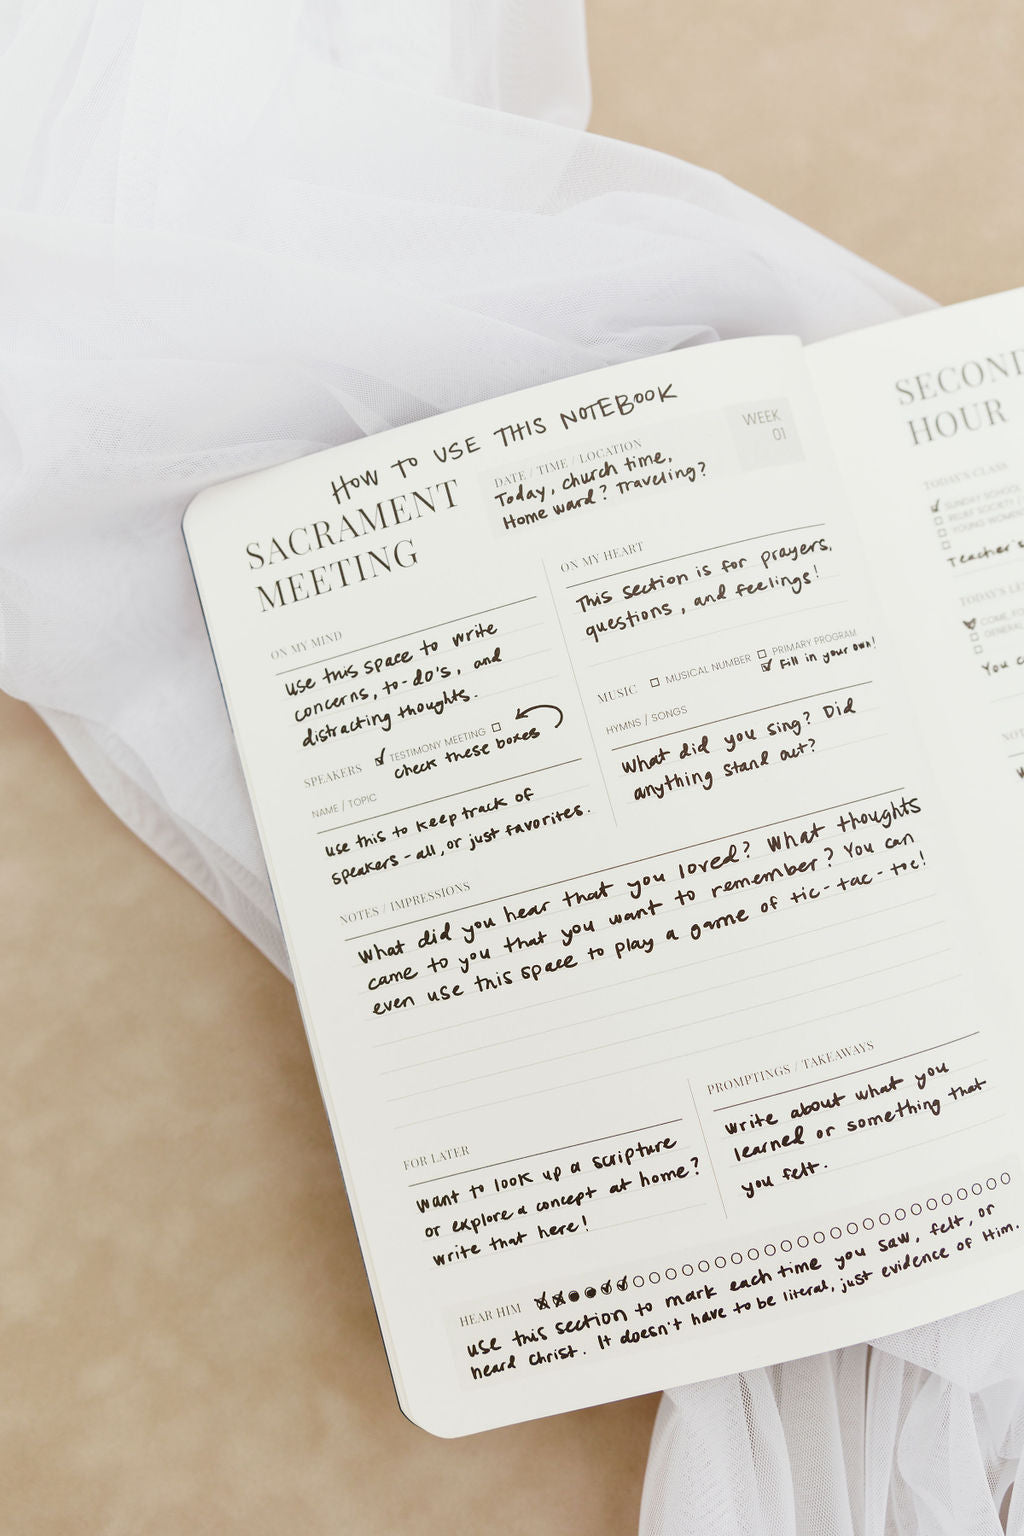 HOW TO USE THIS NOTEBOOK
SACRAMENT
MEETING
DATE / TIME / LOCATION
Today, church time,
Home ward? Traveling?
WEEK
01
ON MY MIND
use this space to write
concerns, to-do's, and
distracting thoughts.
ON MY HEART
This section is for prayers,
questions, and feelings!
SPEAKERS
TESTIMONY MEETING
check these boxes
NAME / TOPIC
use this to keep track of
speakers - all, or just favorites.
MUSIC
MUSICAL NUMBER
PRIMARY PROGRAM
Fill in your own!
HYMNS / SONGS
What did you sing? Did
anything stand out?
NOTES / IMPRESSIONS
What did you hear that you loved? What thoughts
came to you that you want to remember? You can
even use this space to play a game of tic-tac-toe!
FOR LATER
want to look up a scripture
or explore a concept at home?
write that here!
PROMPTINGS / TAKEAWAYS
write about what you
learned or something that
you felt.
HEAR HIM
use this section to mark each time you saw, felt, or
heard Christ. It doesn't have to be literal, just evidence of Him.
SECOND
HOUR
TODAY'S CLASS
SUNDAY SCHOOL
RELIEF SOCIETY /
YOUNG WOMEN
Teacher's
COME, FO
GENERAL
You c